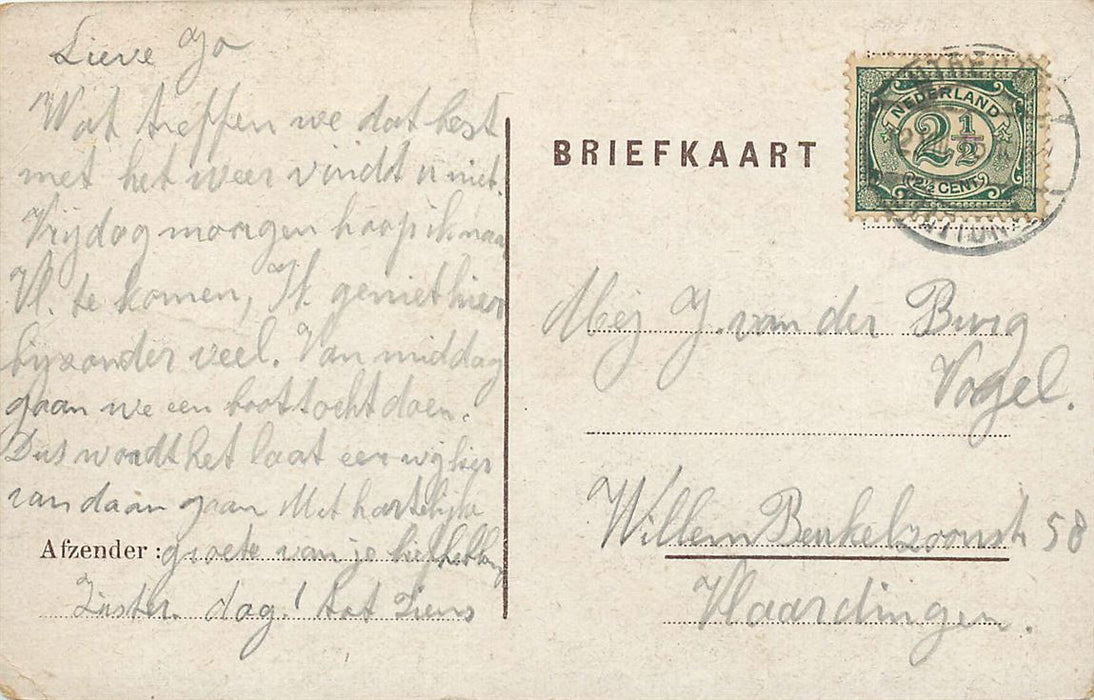 Lieve Jo
Wat treffen we dat best
met het weer vindt u niet.
Vrijdag morgen hoop ik naar
Vl. te komen, Ik geniet hier
byzonder veel. Van middag
gaan we een boottocht doen.
Dus wordt het laat eer wij hier
van daan gaan Met hartelijke
Afzender: groete van je liefhebb
Zuster. dag! tot Ziens
BRIEFKAART
NEDERLAND
2 1/2
2 1/2 CENT
Mej J. van der Burg
Vogel.
Willem Beukelzoonst 58
Vlaardingen.